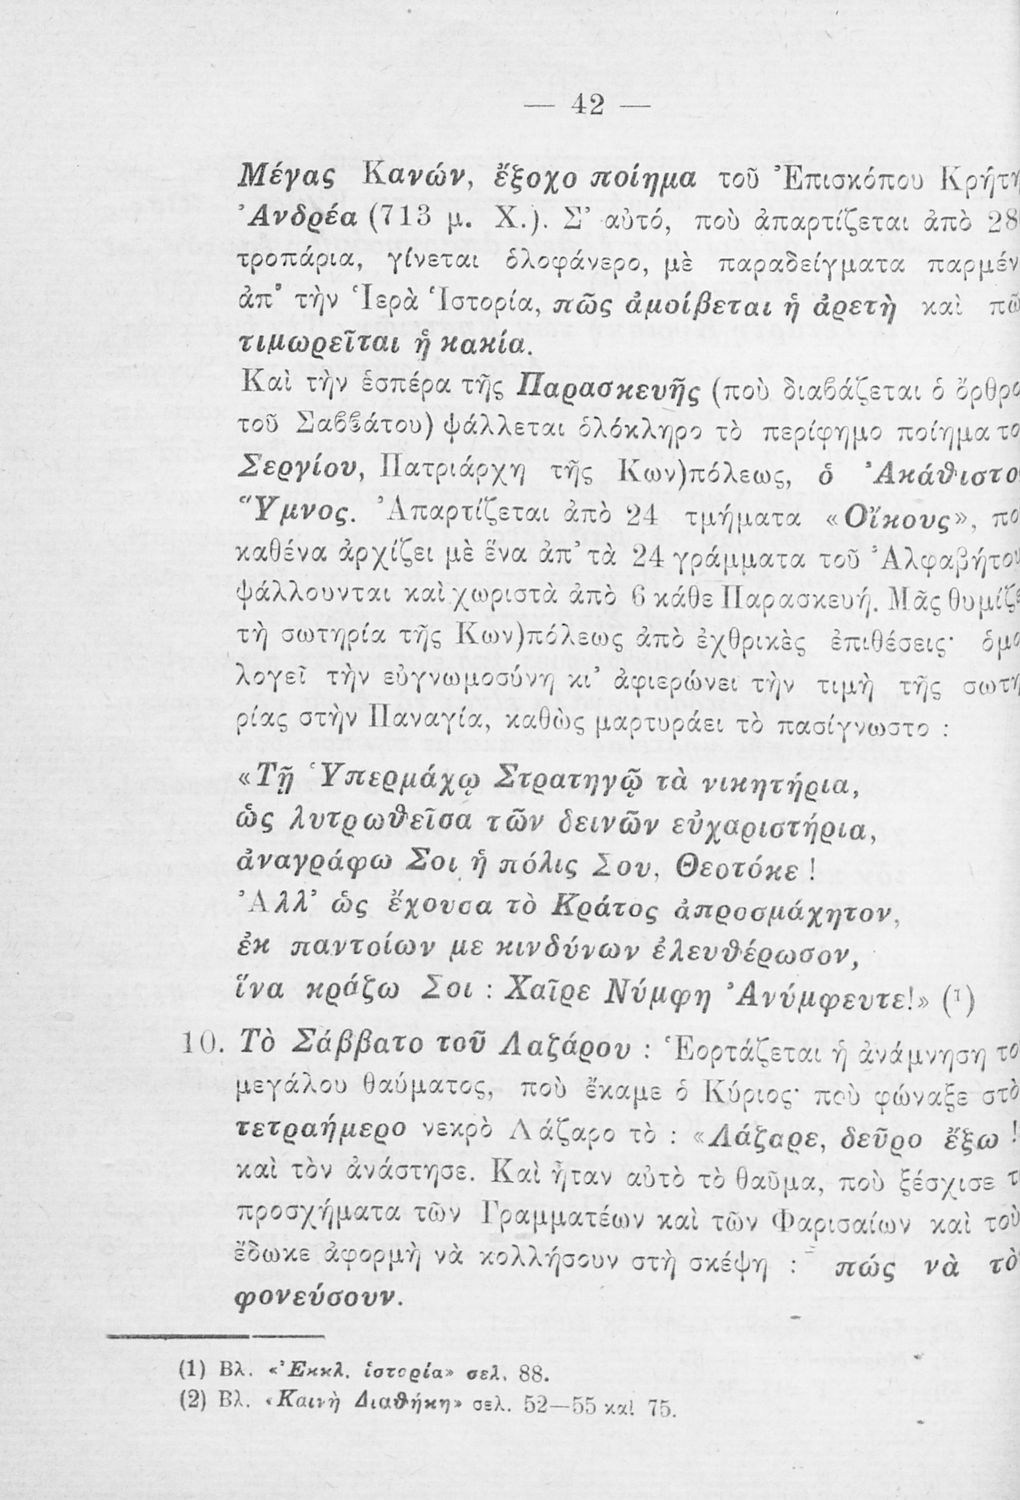 — 42 —
Μέγας Κανών, ἔξοχο ποίημα τοῦ Ἐπισκόπου
Ἀνδρέα (713 μ. Χ.). Σ' αὐτό, ποὺ ἀπαρτίζεται ἀπὸ
τροπάρια, γίνεται ὁλοφάνερο, μὲ παραδείγματα
ἀπ' τὴν Ἱερὰ Ἱστορία, πῶς ἀμοίβεται ἡ ἀρετὴ καὶ
τιμωρεῖται ἡ κακία.
Καὶ τὴν ἑσπέρα τῆς Παρασκευῆς (ποὺ διαβάζεται ὁ
τοῦ Σαββάτου) ψάλλεται ὁλόκληρο τὸ περίφημο ποίημα
Σεργίου, Πατριάρχη τῆς Κων)πόλεως, ὁ
Ὕμνος. Ἀπαρτίζεται ἀπὸ 24 τμήματα «Οἴκους»,
καθένα ἀρχίζει μὲ ἕνα ἀπ' τὰ 24 γράμματα τοῦ
ψάλλουνται καὶ χωριστὰ ἀπὸ 6 κάθε Παρασκευή. Μᾶς
τὴ σωτηρία τῆς Κων)πόλεως ἀπὸ ἐχθρικὲς ἐπιθέσεις·
λογεῖ τὴν εὐγνωμοσύνη κι' ἀφιερώνει τὴν τιμὴ τῆς
ρίας στὴν Παναγία, καθὼς μαρτυράει τὸ πασίγνωστο :
«Τῇ Ὑπερμάχῳ Στρατηγῷ τὰ νικητήρια,
ὡς λυτρωθεῖσα τῶν δεινῶν εὐχαριστήρια,
ἀναγράφω Σοι ἡ πόλις Σου, Θεοτόκε !
Ἀλλ' ὡς ἔχουσα τὸ Κράτος ἀπροσμάχητον,
ἐκ παντοίων με κινδύνων ἐλευθέρωσον,
ἵνα κράζω Σοι : Χαῖρε Νύμφη Ἀνύμφευτε!» (¹)
10. Τὸ Σάββατο τοῦ Λαζάρου : Ἑορτάζεται ἡ ἀνάμνηση
μεγάλου θαύματος, ποὺ ἔκαμε ὁ Κύριος· ποὺ φώναξε στὸ
τετραήμερο νεκρὸ Λάζαρο τὸ : «Λάζαρε, δεῦρο ἔξω !
καὶ τὸν ἀνάστησε. Καὶ ἦταν αὐτὸ τὸ θαῦμα, ποὺ ξέσχισε
προσχήματα τῶν Γραμματέων καὶ τῶν Φαρισαίων καὶ
ἔδωκε ἀφορμὴ νὰ κολλήσουν στὴ σκέψη : πώς νὰ
φονεύσουν.
(1) Βλ. «Ἐκκλ. ἱστορία» σελ. 88.
(2) Βλ. «Καινὴ Διαθήκη» σελ. 52—55 καὶ 75.